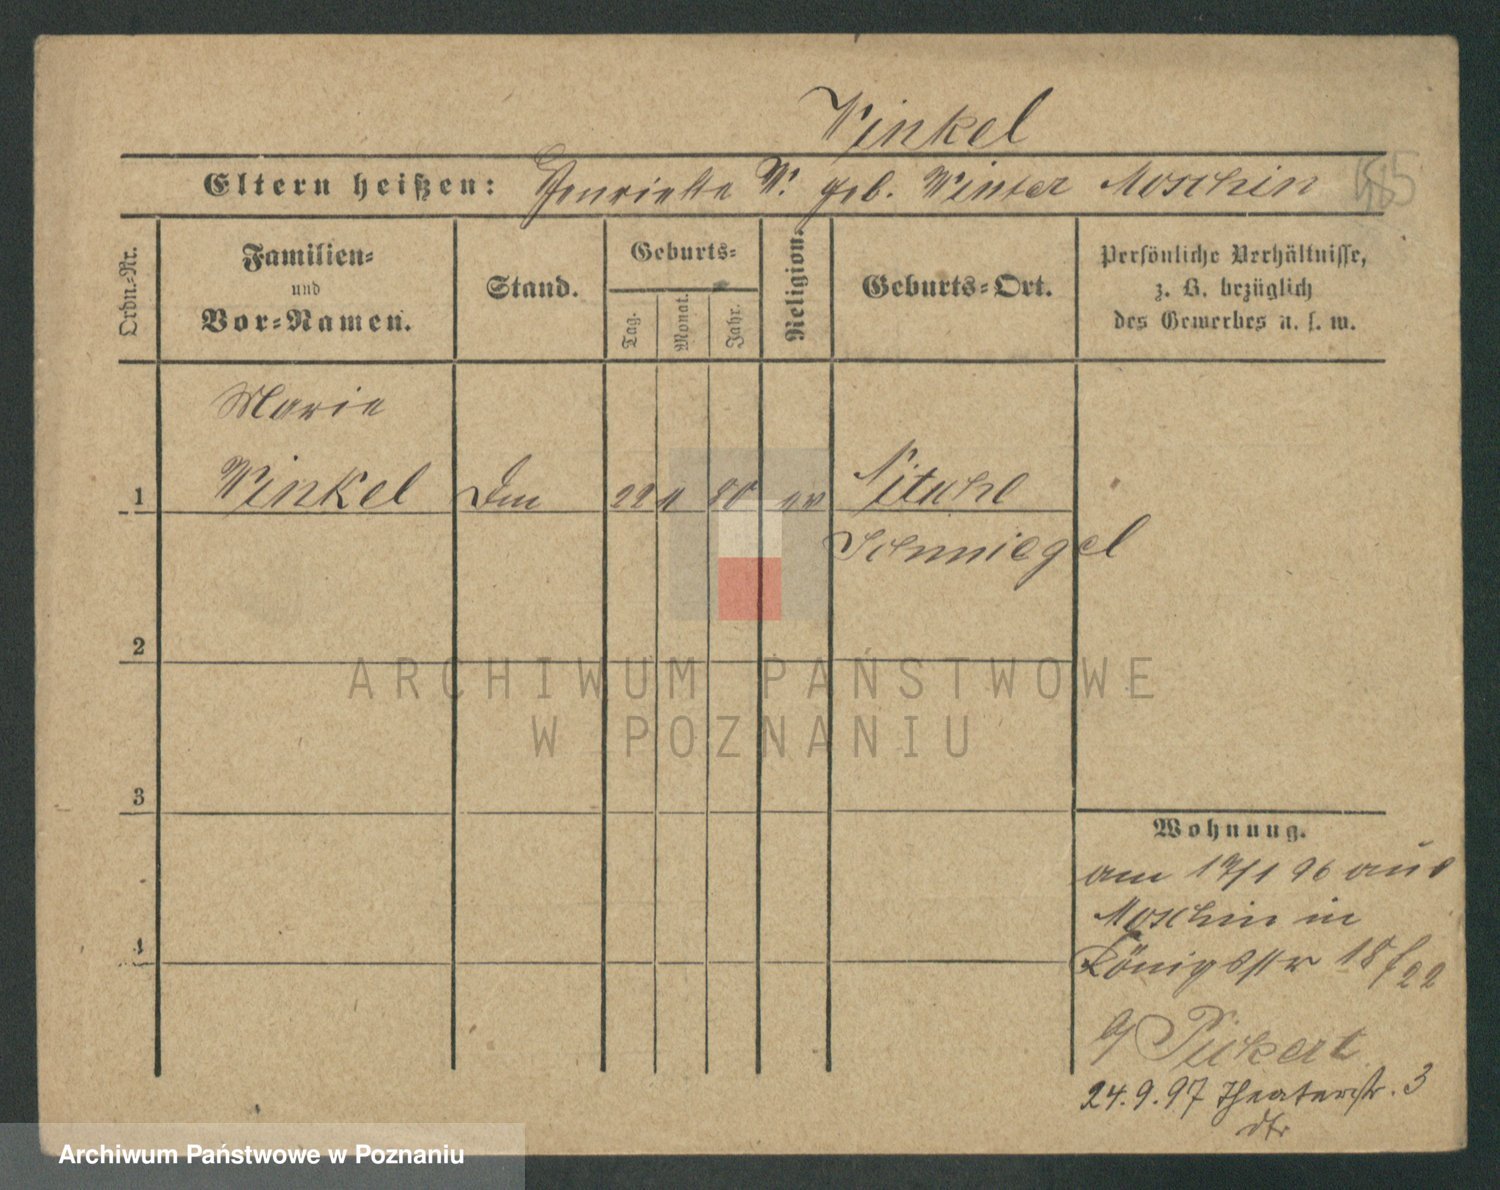 Winkel
Eltern heißen: Henriette W. geb. Winter Moschin
Ordn.-Nr.
Familien-
und
Vor-Namen.
Stand.
Geburts-
Tag.
Monat.
Jahr.
Religion.
Geburts-Ort.
Persönliche Verhältnisse,
z. B. bezüglich
des Gewerbes u. s. w.
Marie
1 Winkel 22 1 80 ev
Schmiegel
2
3
4
Wohnung.
am 17/1 96 aus
Moschin in
Königsstr 18/22
Pickert
24.9.97 Theaterstr. 3
ARCHIWUM PAŃSTWOWE
W POZNANIU
Archiwum Państwowe w Poznaniu